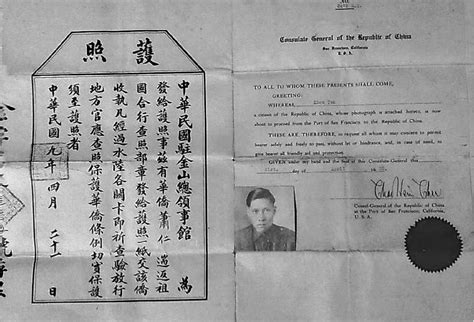 護照
中華民國駐金山總領事館 為
發給護照事茲有華僑蕭仁 遄返祖
國合行查照部章發給護照一紙交該僑
收執凡經過水陸各關卡即祈查驗放行
地方官應查照保護華僑條例切實保護
須至護照者
中華民國 九年 四月 二十一 日
Consulate General of the Republic of China
San Francisco, California
U.S.A.
TO ALL TO WHOM THESE PRESENTS SHALL COME,
GREETING:
WHEREAS
a citizen of the Republic of China, whose photograph is attached hereto, is now
about to proceed from the Port of San Francisco to the Republic of China.
THESE ARE, THEREFORE, to request all whom it may concern to permit
safely and freely to pass, without let or hindrance, and, in case of need, to
give all friendly aid and protection.
GIVEN under my hand and the Seal of this Consulate-General this
day of
Consul-General of the Republic of China
at the Port of San Francisco, California,
U.S.A.